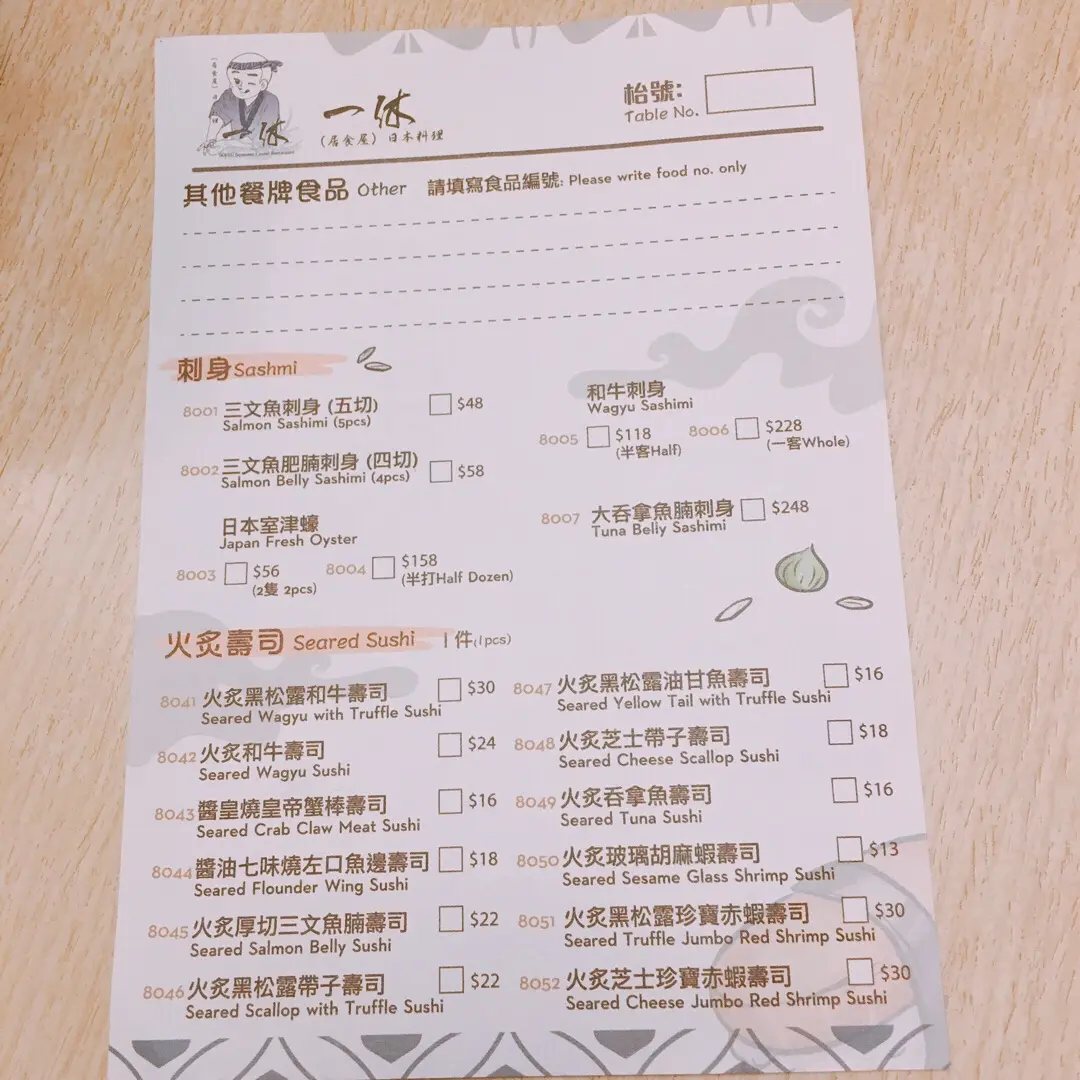 一休
一休
(居食屋) 日本料理
枱號:
Table No.
其他餐牌食品 Other 請填寫食品編號: Please write food no. only
刺身 Sashmi
8001 三文魚刺身 (五切) $48
Salmon Sashimi (5pcs)
8002 三文魚肥腩刺身 (四切) $58
Salmon Belly Sashimi (4pcs)
日本室津蠔
Japan Fresh Oyster
8003 $56 8004 $158
(2隻 2pcs) (半打Half Dozen)
和牛刺身
Wagyu Sashimi
8005 $118 8006 $228
(半客Half) (一客Whole)
8007 大吞拿魚腩刺身 $248
Tuna Belly Sashimi
火炙壽司 Seared Sushi 1件(1pcs)
8041 火炙黑松露和牛壽司 $30
Seared Wagyu with Truffle Sushi
8042 火炙和牛壽司 $24
Seared Wagyu Sushi
8043 醬皇燒皇帝蟹棒壽司 $16
Seared Crab Claw Meat Sushi
8044 醬油七味燒左口魚邊壽司 $18
Seared Flounder Wing Sushi
8045 火炙厚切三文魚腩壽司 $22
Seared Salmon Belly Sushi
8046 火炙黑松露帶子壽司 $22
Seared Scallop with Truffle Sushi
8047 火炙黑松露油甘魚壽司 $16
Seared Yellow Tail with Truffle Sushi
8048 火炙芝士帶子壽司 $18
Seared Cheese Scallop Sushi
8049 火炙吞拿魚壽司 $16
Seared Tuna Sushi
8050 火炙玻璃胡麻蝦壽司 $13
Seared Sesame Glass Shrimp Sushi
8051 火炙黑松露珍寶赤蝦壽司 $30
Seared Truffle Jumbo Red Shrimp Sushi
8052 火炙芝士珍寶赤蝦壽司 $30
Seared Cheese Jumbo Red Shrimp Sushi